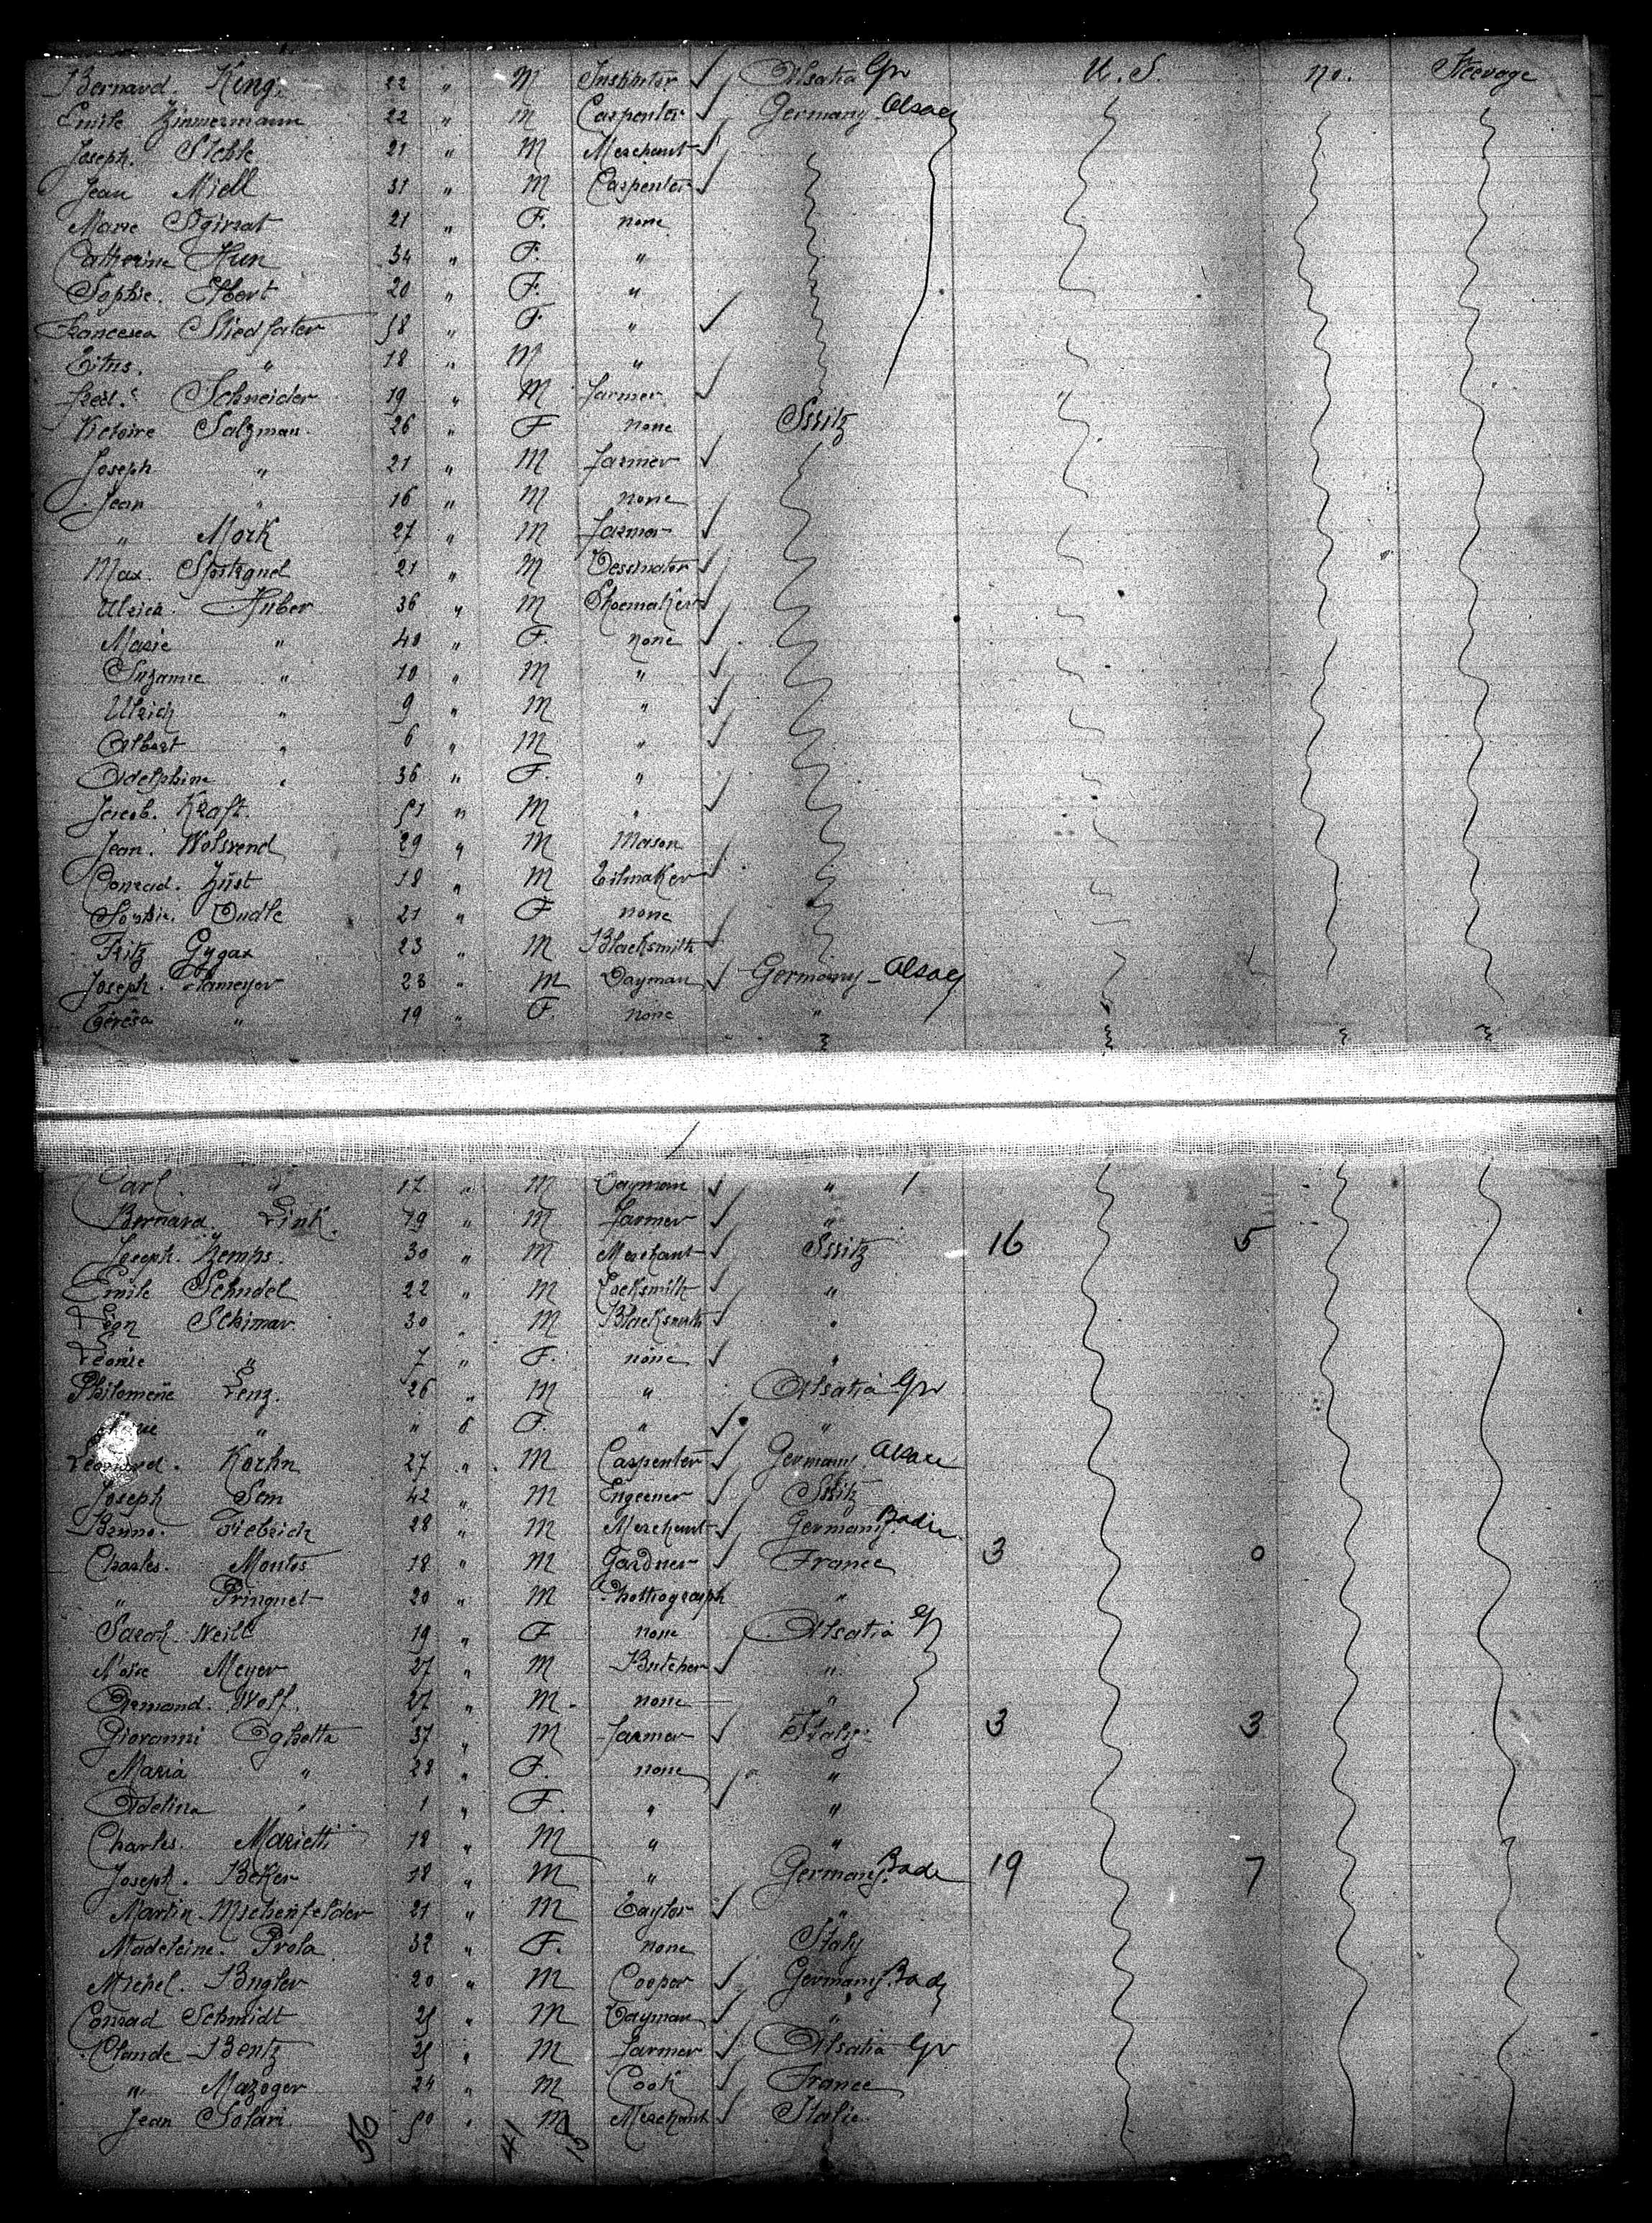 Bernard. King. 22 " M Institutor Alsatia Gr U. S. no. Steerage
Emile Zimmermann 22 " M Carpenter Germany Alsace
Joseph. Steble 21 " M Merchant
Jean Miell 31 " M Carpenter
Marie 21 " F. none
Catherine Hun 34 " F. "
Sophie. Ebert 20 " F. "
Francesca Stiedfater 58 " F "
Titus. " 18 " M "
Fred. Schneider 19 " M farmer
Victoire Salzman. 26 " F none Switz
Joseph " 21 " M farmer
Jean " 16 " M none
" Mork 27 " M farmer
Max. 21 " M Dessinator
Ulrich. Huber 36 " M Shoemaker
Marie " 40 " F. none
Suzanne " 10 " M "
Ulrich " 9 " M "
Albert " 6 " M "
Adelphine " 36 " F. "
Jacob. Kraft. 51 " M "
Jean. Wolsrend 29 " M Mason
Conrad. Züst 18 " M Tilmaker
Sophie. Dudle 21 " F none
Fritz Gygax 23 " M Blacksmith
Joseph. Hameyer 23 " M Dayman Germany - Alsace
Teresa " 19 " F. none "
Carl " 17 " M Dayman "
Bernard. Link. 19 " M farmer "
Joseph. Zemps. 30 " M Merchant Switz 16 5
Emile Schudel 22 " M Locksmith "
Leon Schimar 30 " M Blacksmith "
Leonie " 7 " F. none "
Philomene Lenz. 26 " M " Alsatia Gr
" " 8 F. " "
Leonard. Korhn 27 " M Carpenter Germany Alsace
Joseph Sem 42 " M Engeener Switz
Benno. Fiebrich 28 " M Merchant Germany Baden
Charles. Montes 18 " M Gardner France 3 0
" Pringuet 20 " M Photiograph "
Sarah. Weill 19 " F none Alsatia Gr
Moise Meyer 27 " M Butcher "
Armand. Wolf. 27 " M none "
Giovanni Oghetta 37 " M farmer Italy 3 3
Maria " 28 " F. none "
Adelina " 1 " F. " "
Charles. Marietti 18 " M " "
Joseph. Beker 18 " M " Germany. Bade 19 7
Martin Michenfelder 21 " M Taylor "
Madeleine. Prola 32 " F. none Italy
Michel. Bugler 20 " M Cooper Germany. Bade
Conrad Schmidt 25 " M Dayman "
Claude Bentz 25 " M farmer Alsatia Gr
" Mazoger 24 " M Cook France
Jean Solari 50 " M Merchant Italie
56 41 15